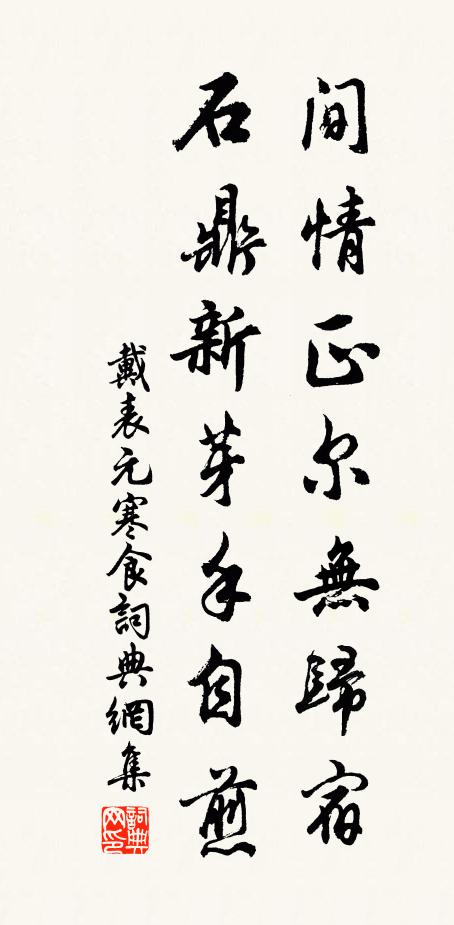 閒情正尔無歸宿
石鼎新芽手自煎
戴表元寒食詞典網集
詞典網印